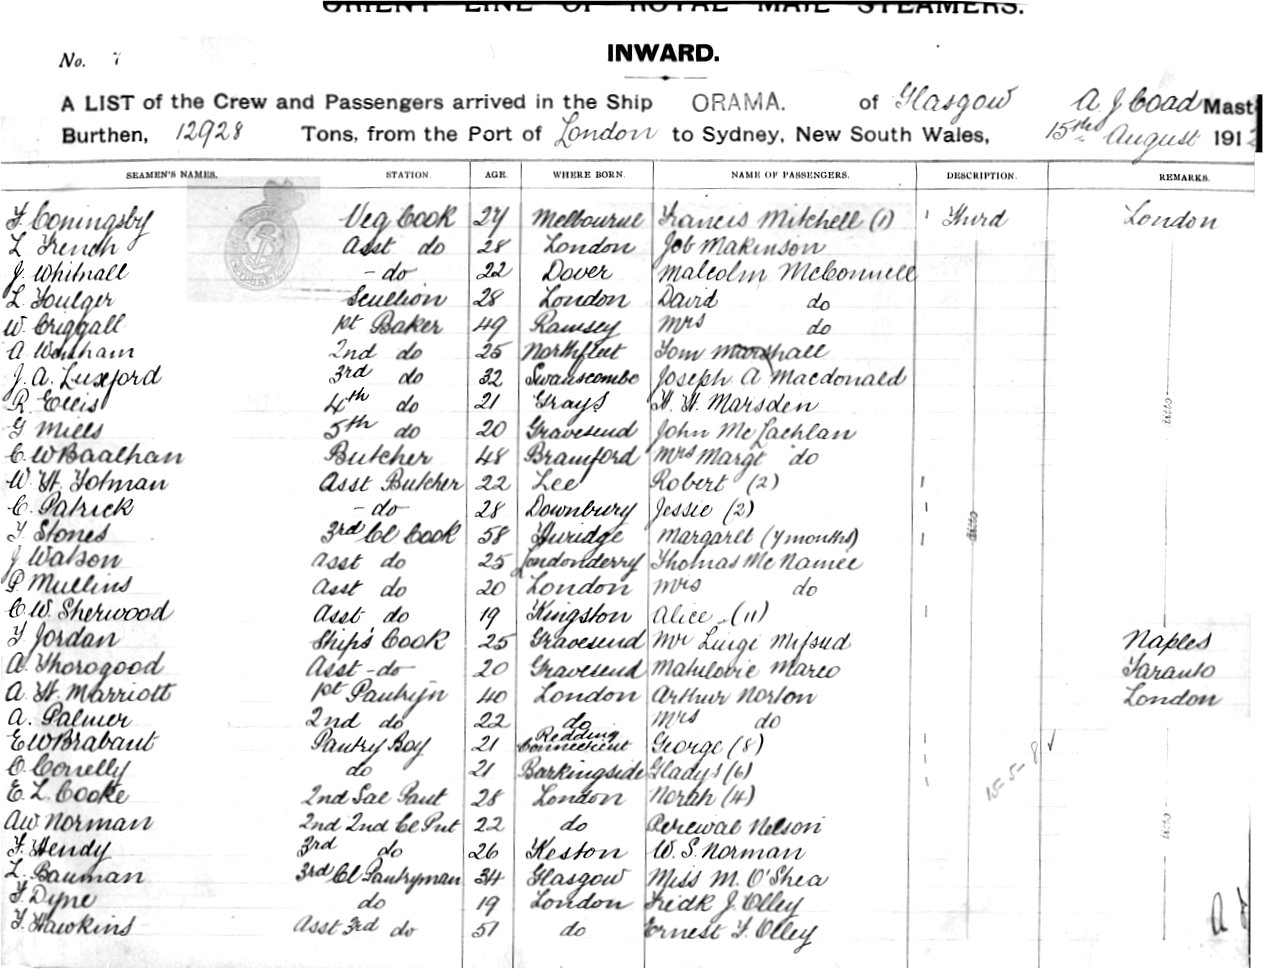 ORIENT LINE OF ROYAL MAIL STEAMERS.
No. 7
INWARD.
A LIST of the Crew and Passengers arrived in the Ship ORAMA. of Glasgow A J Coad Mast
Burthen, 12928 Tons, from the Port of London to Sydney, New South Wales, 15th August 191
SEAMEN'S NAMES. STATION. AGE. WHERE BORN. NAME OF PASSENGERS. DESCRIPTION. REMARKS.
F. Coningsby Veg Cook 27 Melbourne Francis Mitchell (1) 1 Third London
L French Asst do 28 London Job Makinson
J. Whitnall - do - 22 Dover Malcolm McConnell
L. Foulger Scullion 28 London David do
W. Criggall 1st Baker 49 Ramsey Mrs do
A 2nd do 25 Northfleet Tom Marshall
J. A. Luxford 3rd do 32 Swanscombe Joseph A Macdonald
R Ellis 4th do 21 Grays H. H. Marsden
G Mills 5th do 20 Gravesend John McLachlan
C. W Baalhan Butcher 48 Bramford Mrs Margt do
W. H. Totman Asst Butcher 22 Lee Robert (2) 1
C. Patrick - do - 28 Downbury Jessie (2) 1
F. Stones 3rd Cl Cook 58 Margaret (7 months) 1 ditto
J Watson Asst do 25 Londonderry Thomas McNamee
P Mullins Asst do 20 London Mrs do
C. W. Sherwood Asst do 19 Kingston Alice (11) 1
F Jordan Ship's Cook 25 Gravesend Mr Luigi Mifsud Naples
A. Thorogood Asst - do - 20 Gravesend Matulovic Marco Taranto
A. H. Marriott 1st Pantryn 40 London Arthur Norton London
A. Palmer 2nd do 22 do Mrs do
E W Brabant Pantry Boy 21 Redding Connecticut George (8) 1
C. Conelly do 21 Barkingside Gladys (6) 1 15-5-8 ✓
E. L. Cooke 2nd Sal Pant 28 London Norah (4) 1
A W Norman 2nd 2nd Cl Pnt 22 do Percival Nelson
F. Hendy 3rd do 26 Keston W. S. Norman
L. Bauman 3rd Cl Pantryman 34 Glasgow Miss M. O'Shea
F. Dyne do 19 London Fredk J. Olley
F. Hawkins Asst 3rd do 51 do Ernest F. Olley